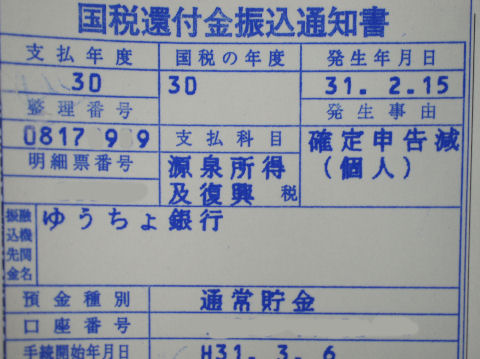 国税還付金振込通知書
支払年度 国税の年度 発生年月日
30 30 31. 2.15
整理番号 発生事由
0817 9 9 支払科目 確定申告減
明細票番号 源泉所得 (個人)
及復興 税
振込先金融機関名 ゆうちょ銀行
預金種別 通常貯金
口座番号
手続開始年月日 H31. 3. 6